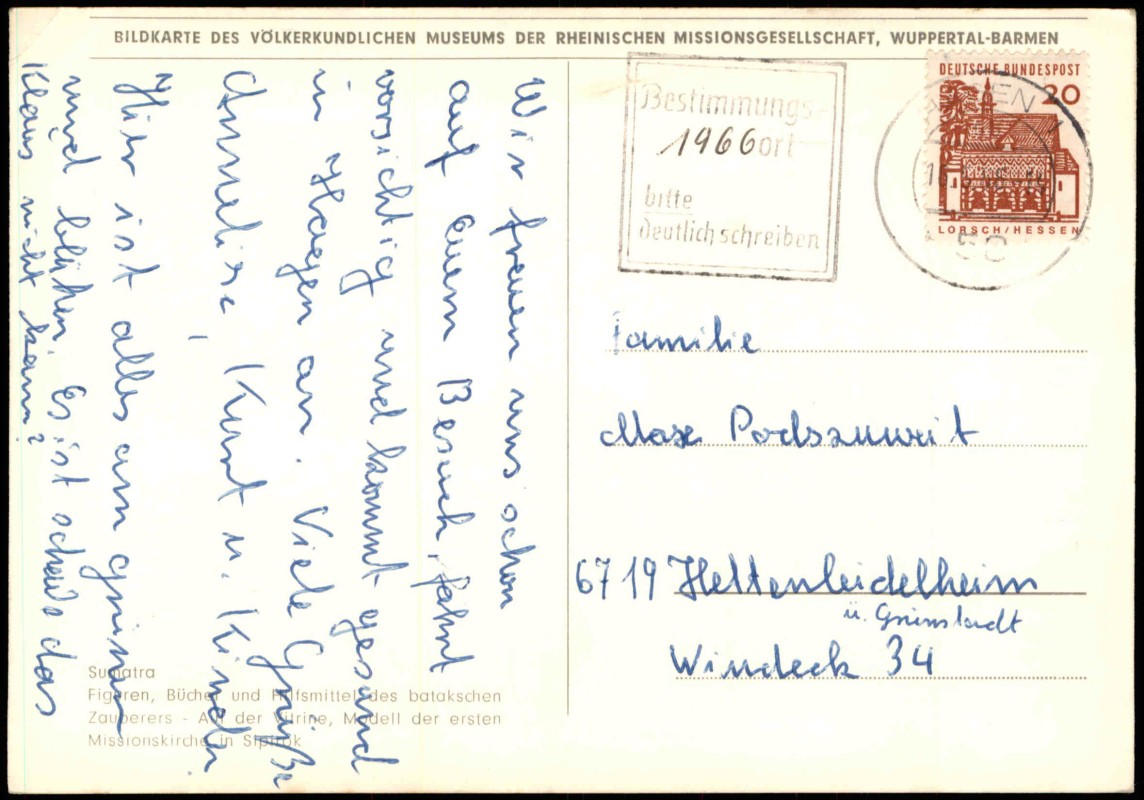 BILDKARTE DES VÖLKERKUNDLICHEN MUSEUMS DER RHEINISCHEN MISSIONSGESELLSCHAFT, WUPPERTAL-BARMEN
Wir freuen uns schon
auf euern Besuch, fahrt
vorsichtig und kommt gesund
in Hagen an. Viele Grüße
Annelise, Kurt u. Kinder
Hier ist alles am grünen
und blühen. Es ist schade das
Klaus nicht kann?
Bestimmungs-
1966 ort
bitte
deutlich schreiben
DEUTSCHE BUNDESPOST
20
LORSCH/HESSEN
58
Familie
Max Podszuweit
6719 Hettenleidelheim
ü. Grünstadt
Windeck 34
Sumatra
Figuren, Bücher und Hilfsmittel des batakschen
Zauberers - Auf der Vitrine, Modell der ersten
Missionskirche in Sipirok